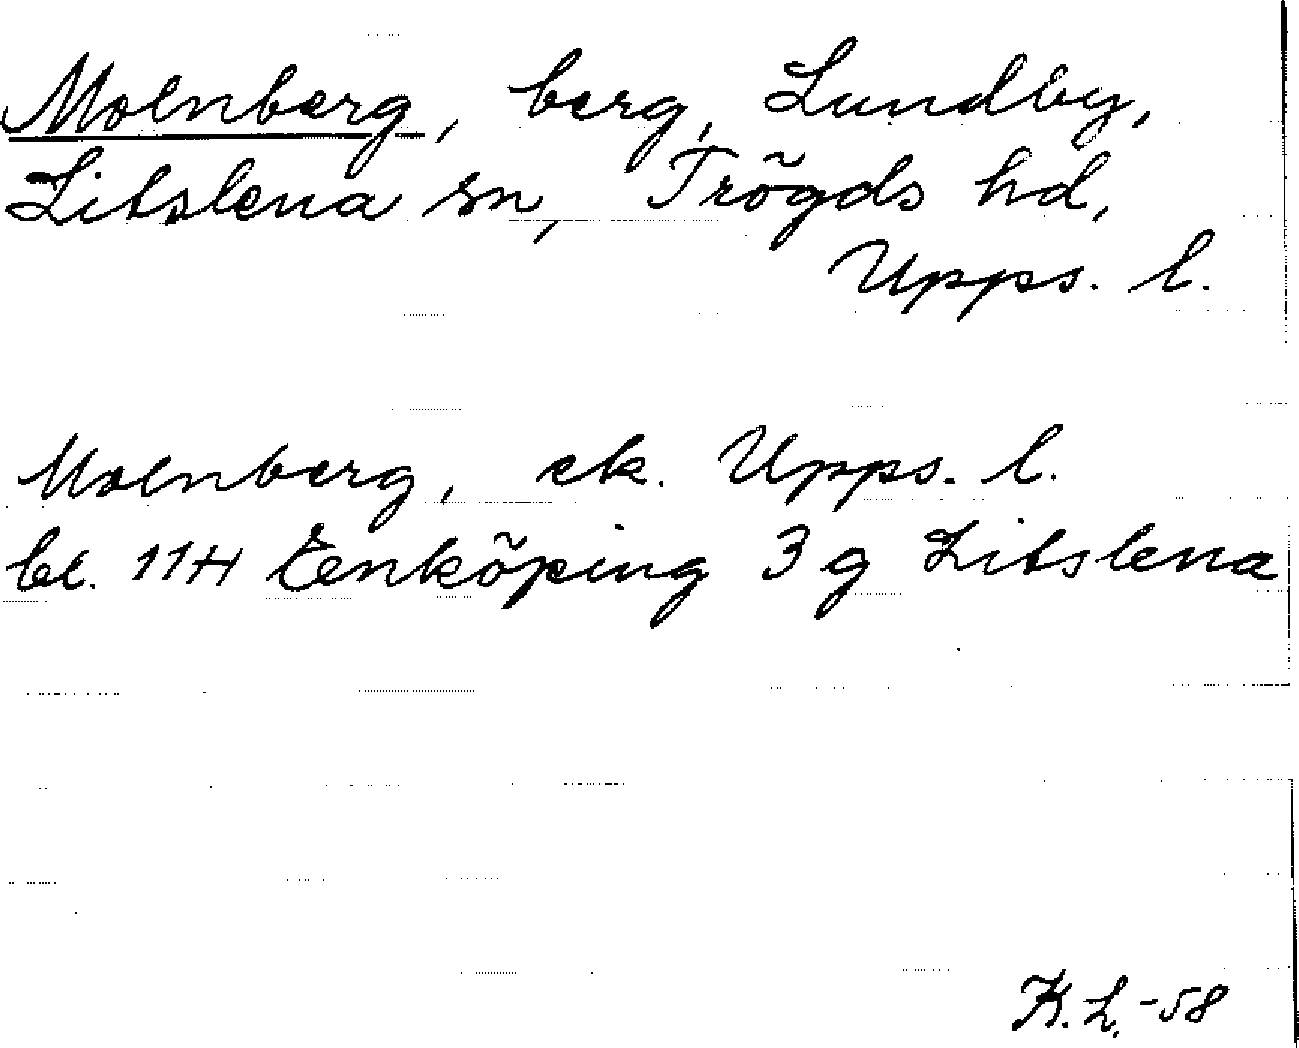 Molnberg, berg, Lundby,
Litslena sn, Trögds hd,
Upps. l.
Molnberg, ek. Upps. l.
bl. 11H Enköping 3 g Litslena
K. L. -58